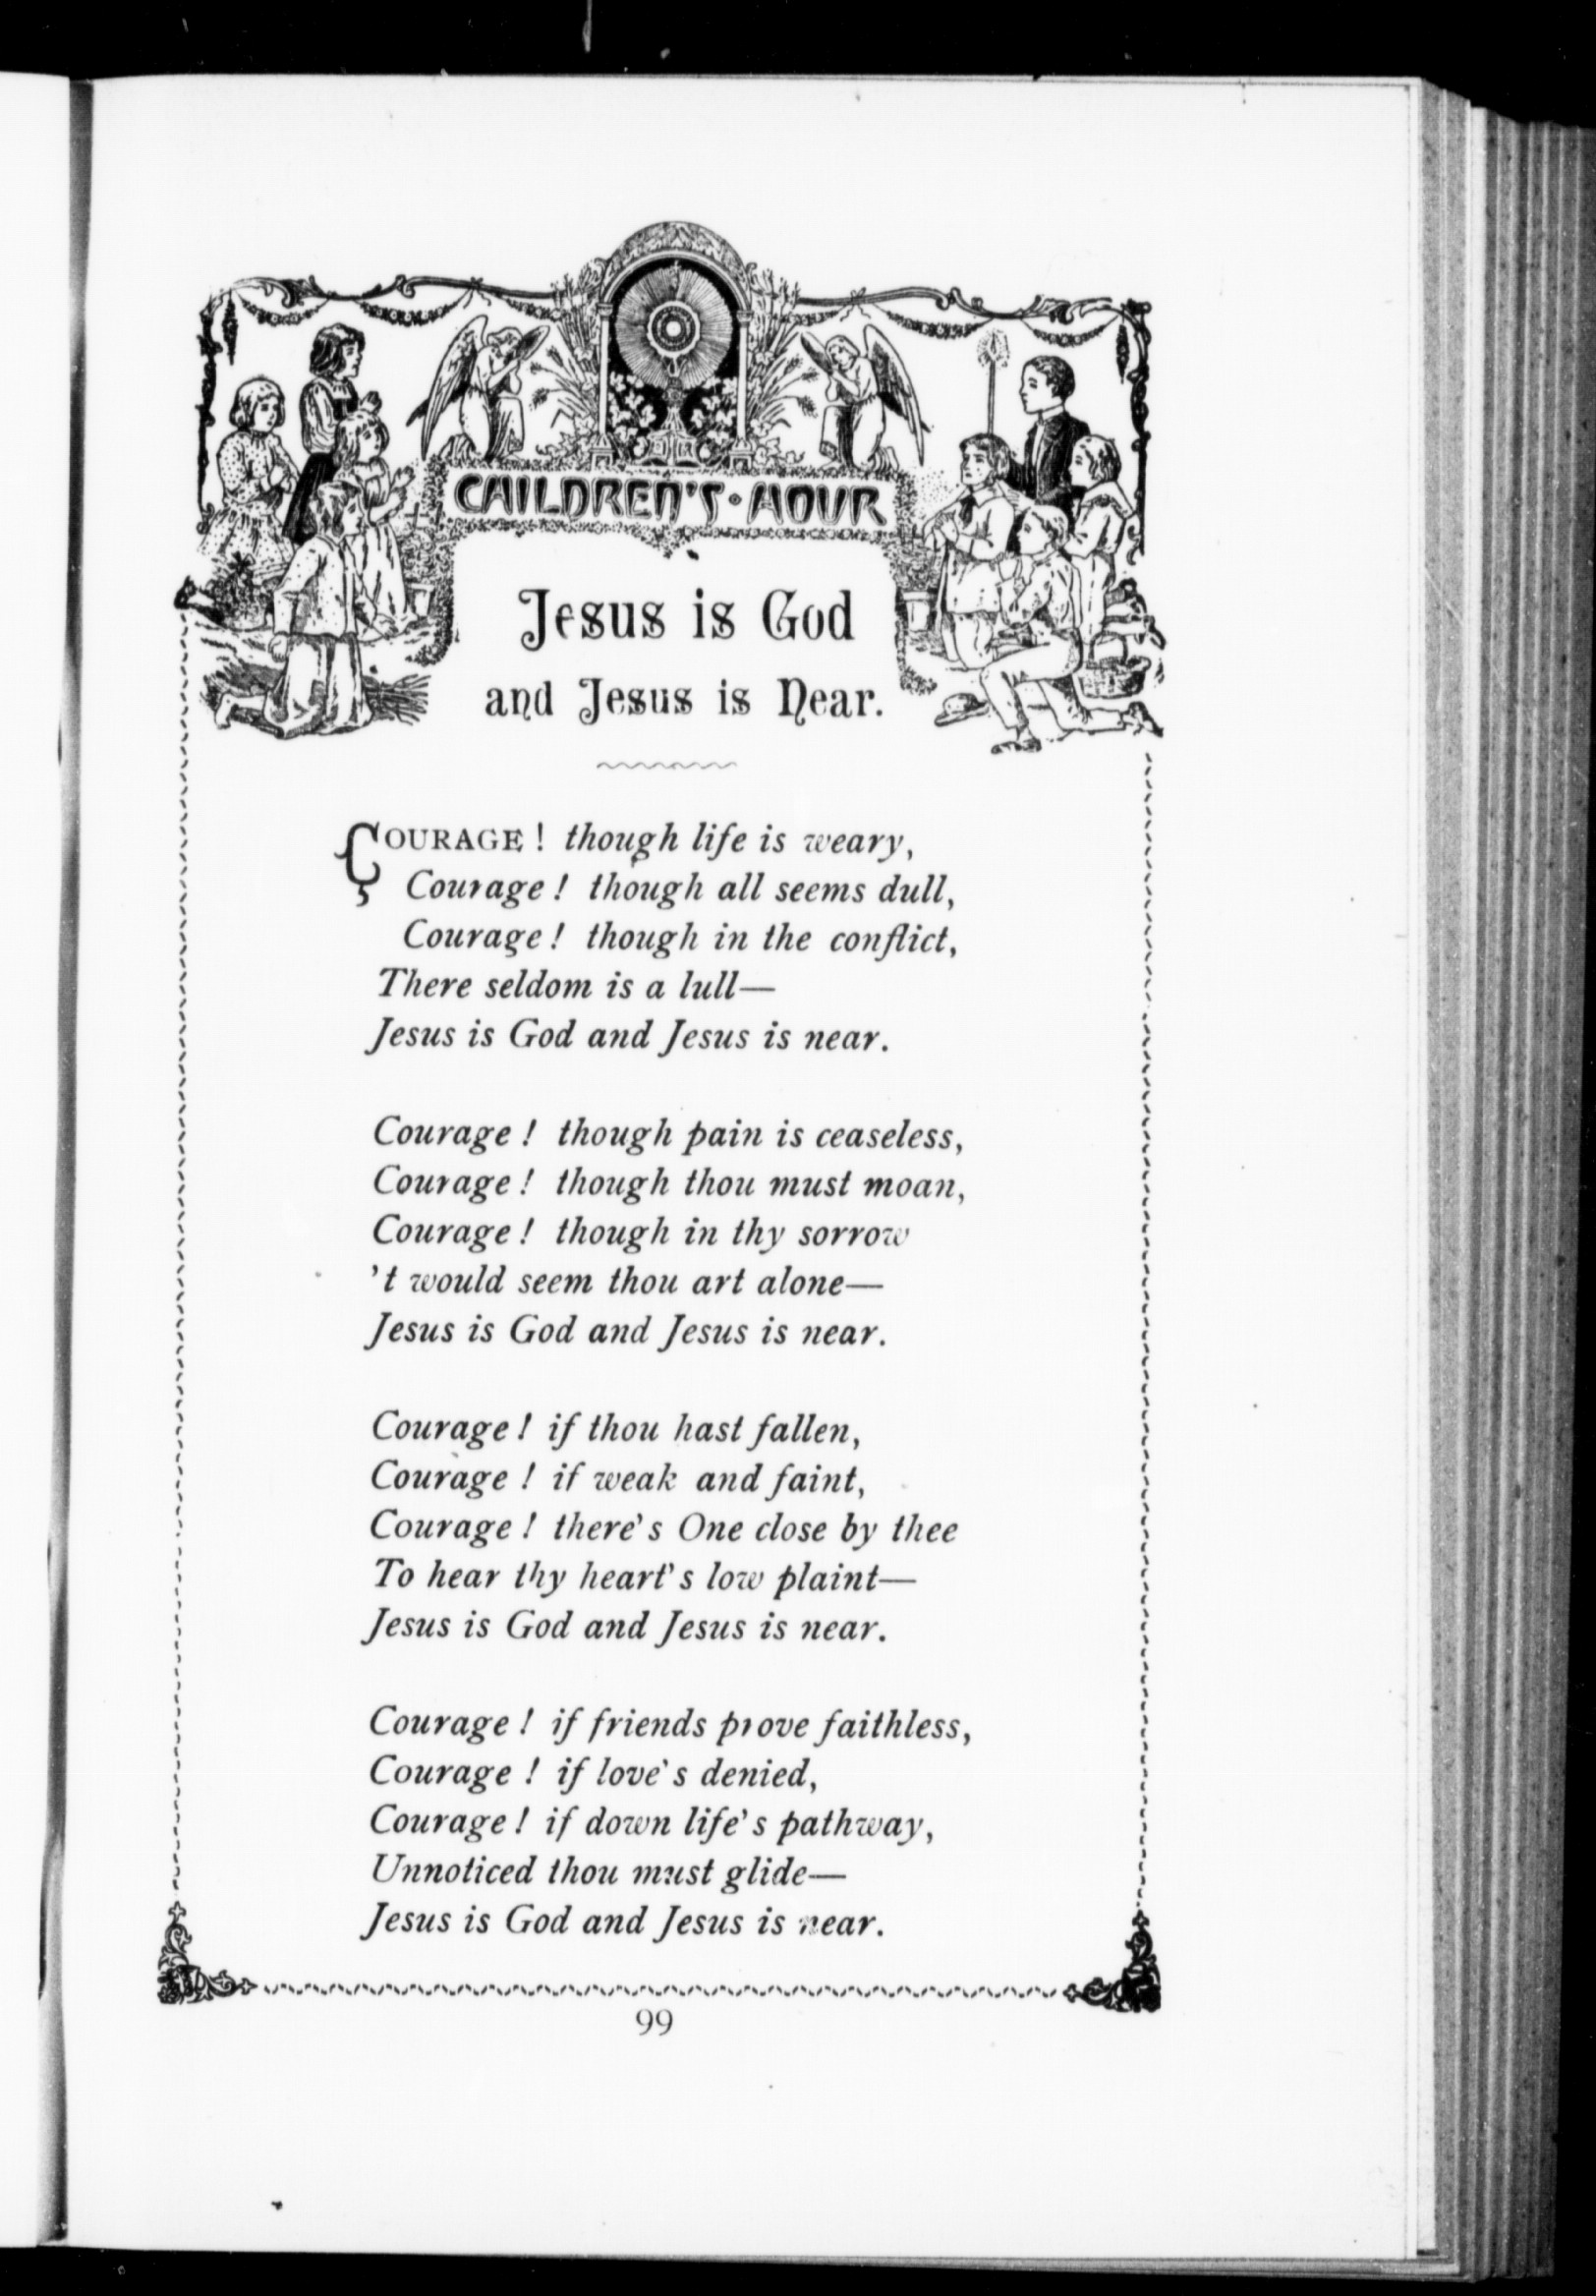 CHILDREN'S · HOUR
Jesus is God
and Jesus is Near.
COURAGE ! though life is weary,
Courage ! though all seems dull,
Courage ! though in the conflict,
There seldom is a lull—
Jesus is God and Jesus is near.
Courage ! though pain is ceaseless,
Courage ! though thou must moan,
Courage ! though in thy sorrow
't would seem thou art alone—
Jesus is God and Jesus is near.
Courage ! if thou hast fallen,
Courage ! if weak and faint,
Courage ! there's One close by thee
To hear thy heart's low plaint—
Jesus is God and Jesus is near.
Courage ! if friends prove faithless,
Courage ! if love's denied,
Courage ! if down life's pathway,
Unnoticed thou must glide—
Jesus is God and Jesus is near.
99